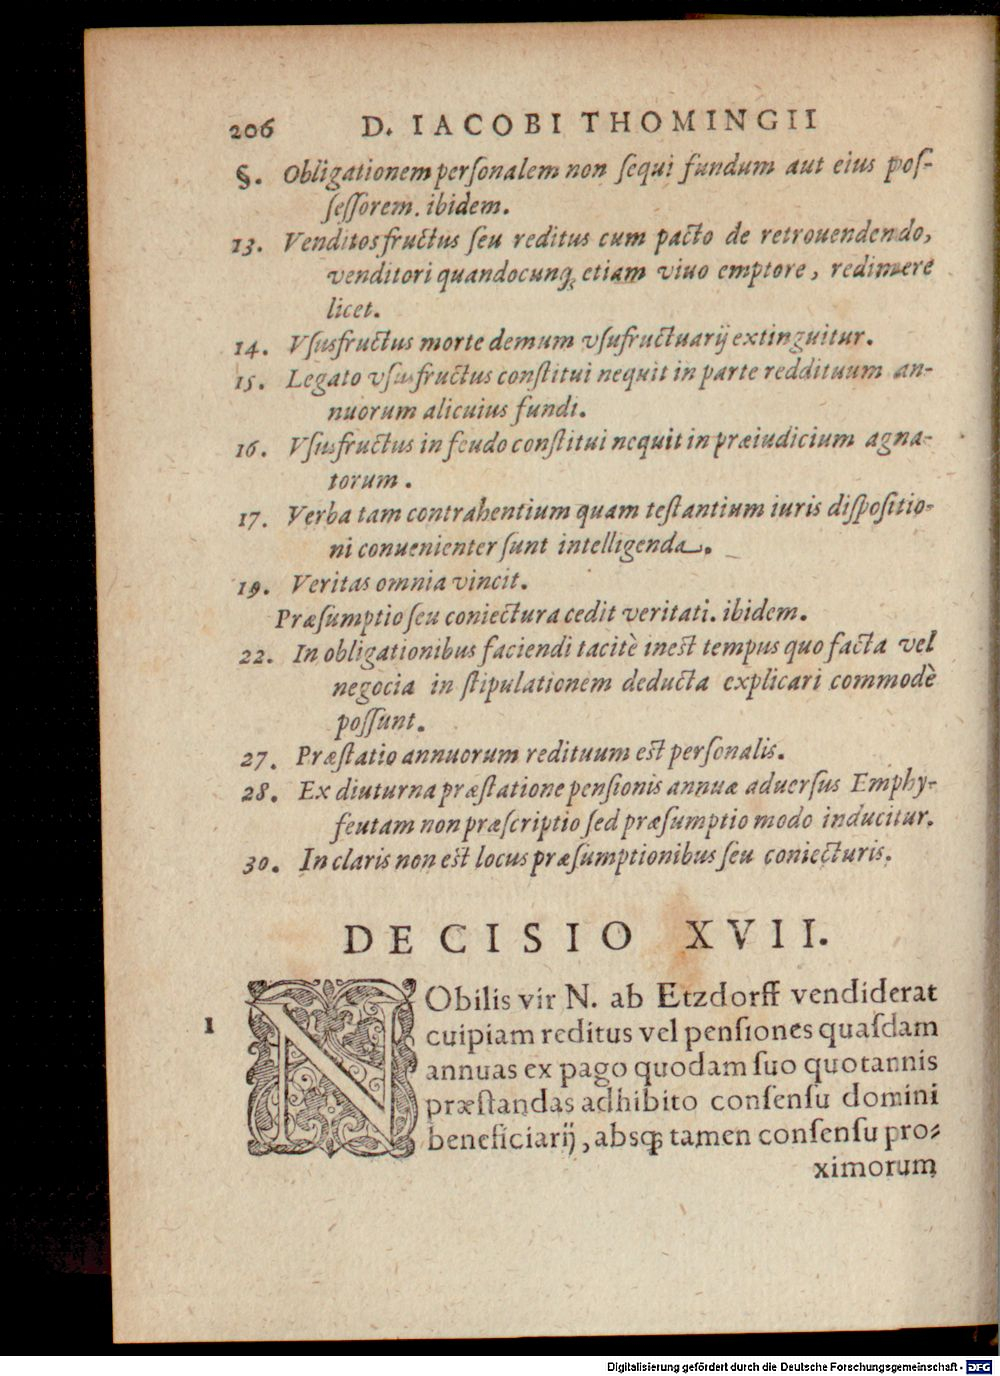 206 D. IACOBI THOMINGII
§. Obligationem personalem non sequi fundum aut eius pos-
sessorem. ibidem.
13. Venditos fructus seu reditus cum pacto de retrouendendo,
venditori quandocunq; etiam viuo emptore, redimere
licet.
14. Vsusfructus morte demum vsufructuarij extinguitur.
15. Legato vsusfructus constitui nequit in partereddituum an-
nuorum alicuius fundi.
16. Vsusfructus in feudo constitui nequit in præiudicium agna-
torum.
17. Verba tam contrahentium quam testantium iuris dispositio-
ni conuenienter sunt intelligenda.
19. Veritas omnia vincit.
Præsumptio seu coniectura cedit veritati. ibidem.
22. In obligationibus faciendi tacitè inest tempus quo facta vel
negocia in stipulationem deducta explicari commodè
possunt.
27. Præstatio annuorum redituum est personalis.
28. Ex diuturna præstatione pensionis annuæ aduersus Emphy-
feutam non præscriptio sed præsumptio modo inducitur.
30. In claris non est locus præsumptionibus seu coniecturis.
DECISIO XVII.
NObilis vir N. ab Etzdorff vendiderat
1 cuipiam reditus vel pensiones quasdam
annuas ex pago quodam suo quotannis
præstandas adhibito consensu domini
beneficiarij, absq; tamen consensu pro-
ximorum
Digitalisierung gefördert durch die Deutsche Forschungsgemeinschaft - DFG